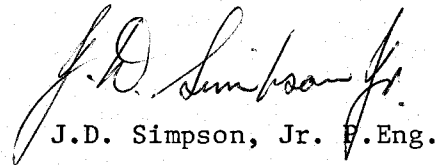 J.D. Simpson Jr.
J.D. Simpson, Jr. P.Eng.